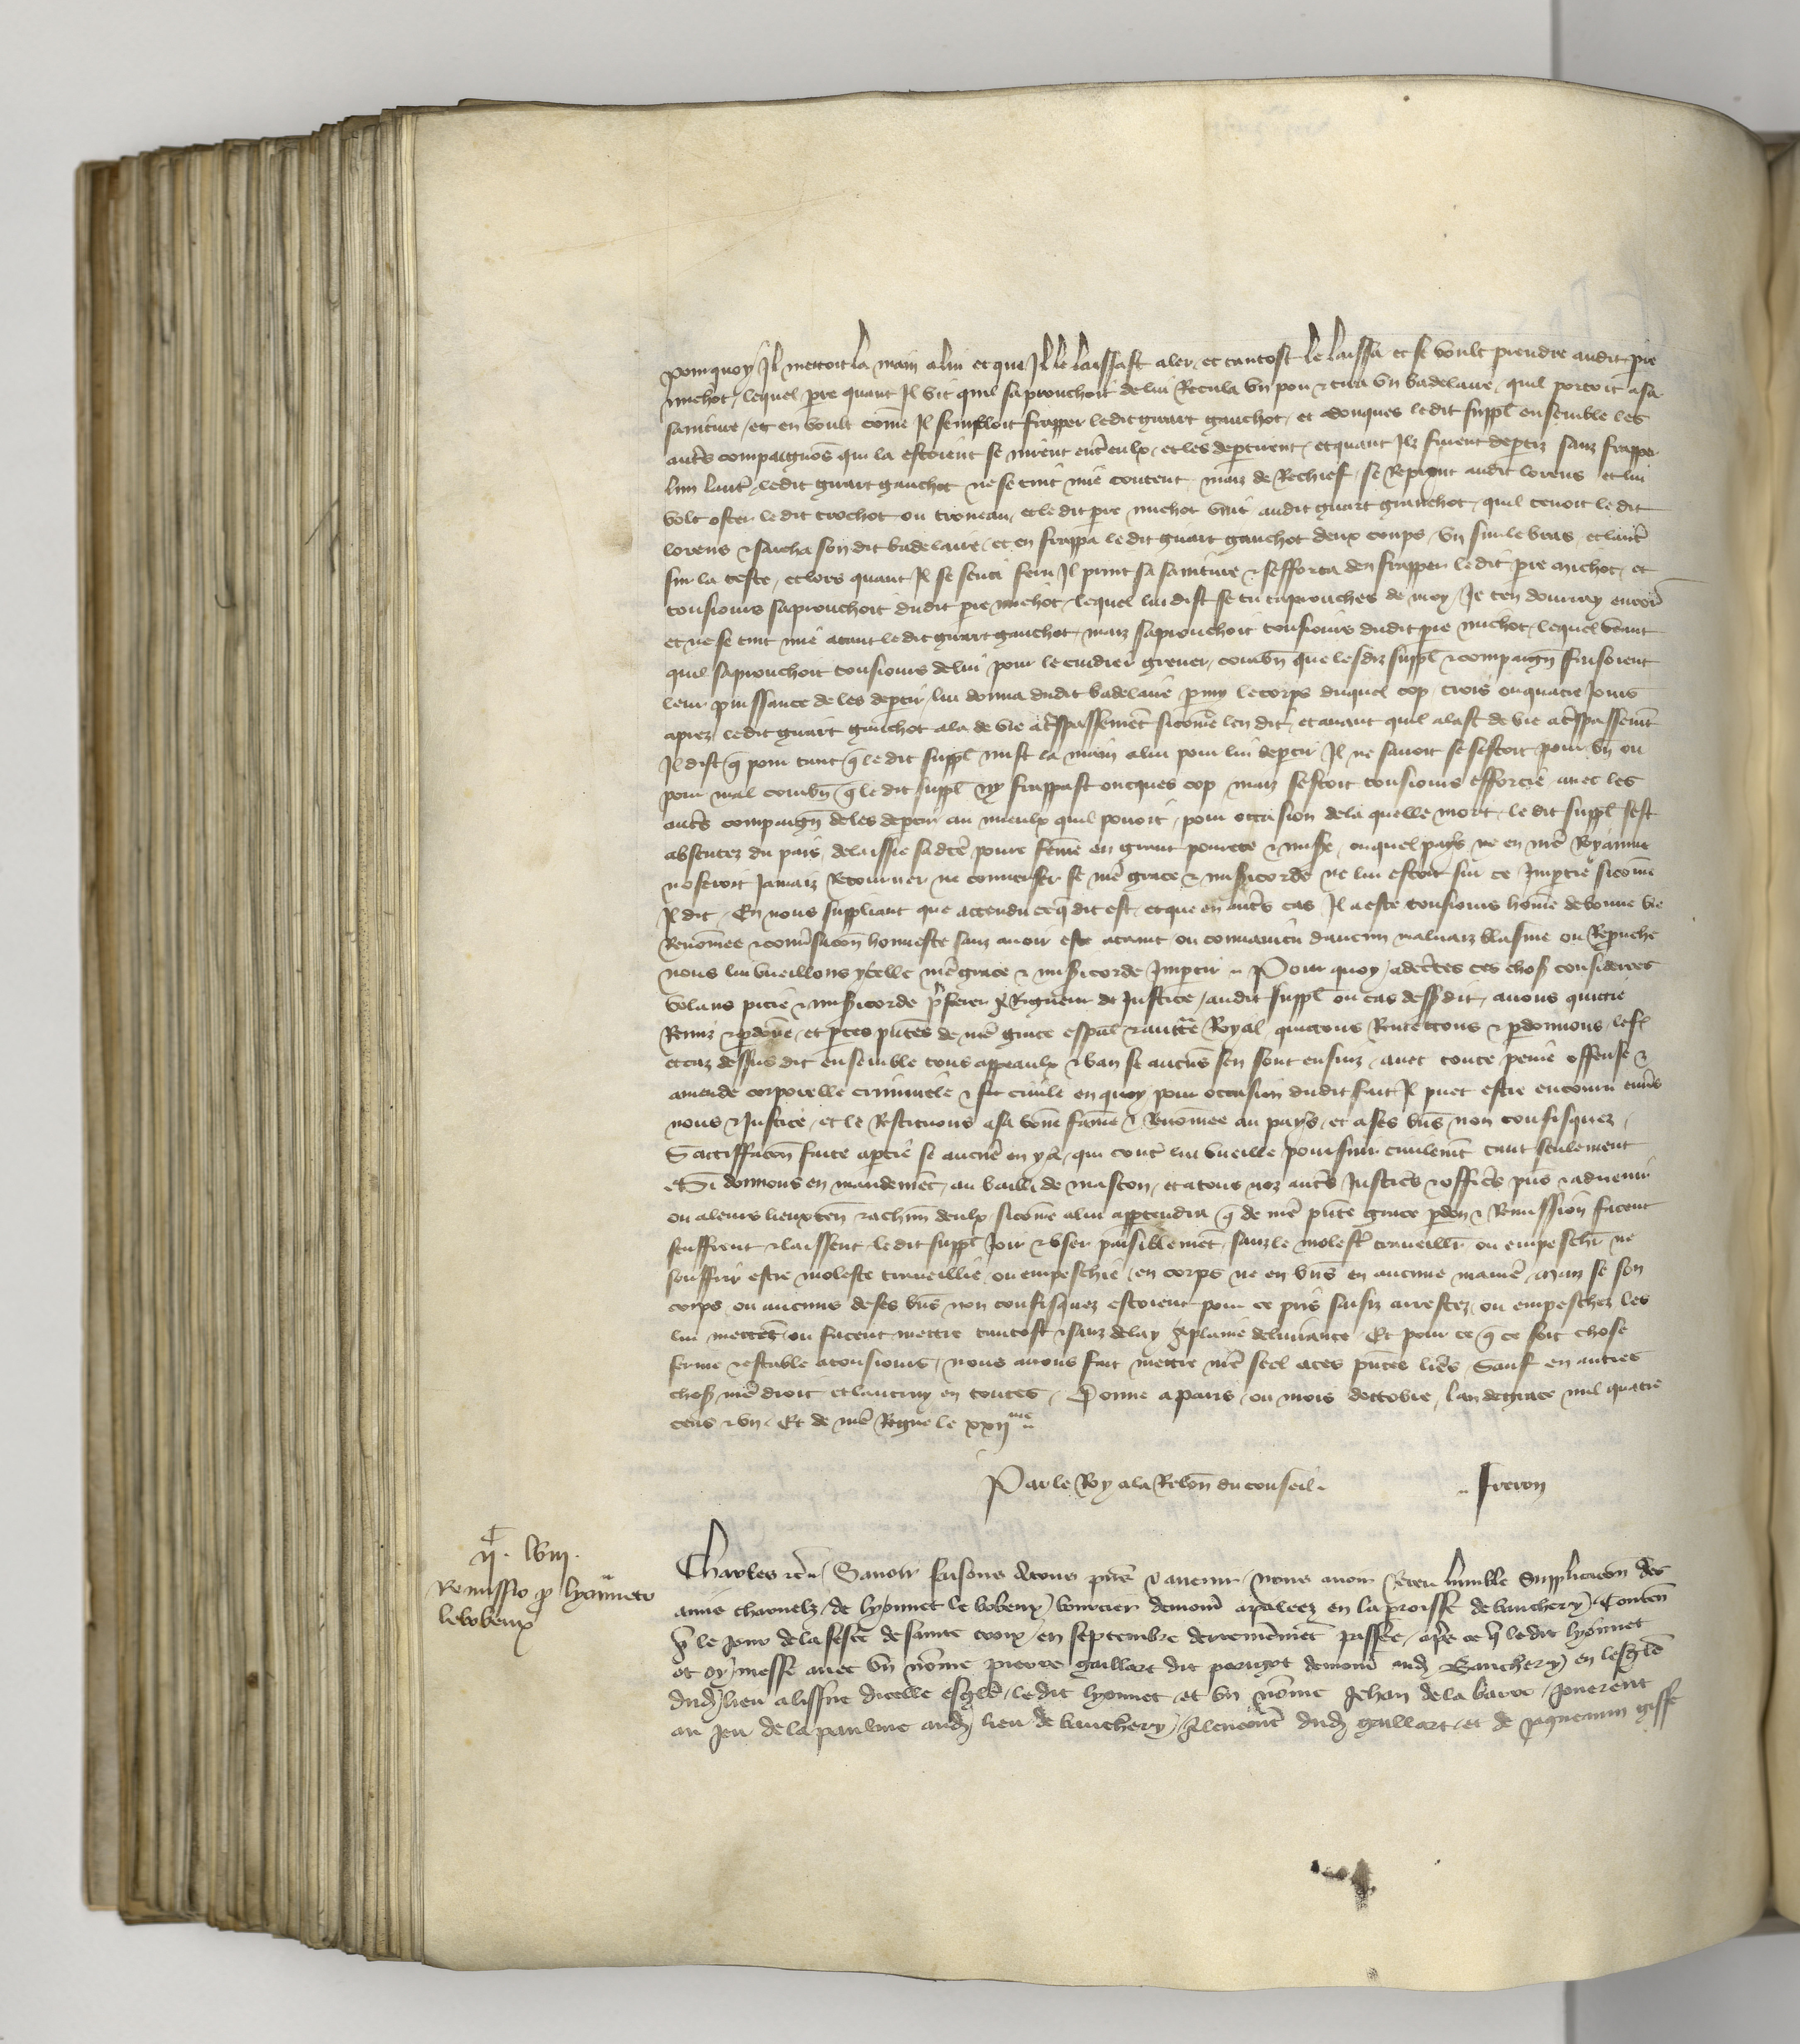 pourquoy Il mettoit la main a lui et que Il le laissast aler, et tantost le laissa et se voult prendre audit pre
michot, lequel pre quant Il vit quil saprouchoit de lui Recula vn pou & tira vn badelaire, quil portoit a sa
sainture, et en voult come Il sembloit frapper ledit guart gauchot, et adonques ledit suppl ensemble les
autrs compaignos qui la estoient se mirent entre eulx, et les deptirent, et quant Ilz furent deptiz sanz frapper
lun lautr, ledit guart gauchot ne se tint mie content, maiz de Rechief se Reprint audit lorens et lui
volt oster le dit trochot ou troneau, et le dit pre michot vint audit guart gauchot, quil tenoit le dit
lorens & sacha son dit badelaire, et en frappa le dit guart gauchot deux coups, vn sur le bras, et lautr
sur la teste, et lors quant Il se senti feru Il print sa sainture & sefforca den frapper le dit pre michot, et
tousiours saprouchoit dudit pre michot, lequel lui dist se tu taprouches de moy, Je ten donrray encor
et ne se tint mie atant ledit guart gauchot, maiz saprouchoit tousiours dudit pre michot, lequel veant
quil saprouchoit tousiours de lui pour le cuidier grever, combn que lesdiz suppl & compaign faisoient
leur puissance de les deptir, lui donna dudit badelaire pmy le corps duquel cop, trois ou quatre Jours
aprez ledit guart gauchot ala de vie a trespassemet sicome len dit, et auant quil alast de vie a trespassemt
Il dist q pour tant q le dit suppl mist la main a lui pour lui deptir Il ne sauoit se sestoit pour bn ou
pour mal combn q le dit suppl ny frappast oncques cop maiz sestoit tousiours efforcie auec les
autrs compaign de les deptir au mieulx quil pouoit, pour occasion de la quelle mort, le dit suppl sest
absentez du pais, delaissie sa dte poure feme en grant pourete & misse, ouquel pays ne en nre Royaume
noseroit Jamaiz Retourner ne conuerser se nre grace & misicorde ne lui estoit sur ce Impertie sicome
Il dit, En nous suppliant que attendu ce q dit est, et que en autrs cas Il a este tousiours home de bonne vie
Renomee & conusacon honneste sanz auoir este ataint ou conuaincu daucun mauuaiz blasme ou Reprouche
nous lui vueillons ycelle nre grace & misicorde Impertir, Pour quoy, adcertes ces choss considerees
volans pitie & misicorde pferer a Rigueur de Justice, audit suppl ou cas dessus dit, auons quictie
Remiz & pdone, et p ces pntes de nre grace espal & auttre Royal quictons Remettons & pdonnons, lesd
et cas dessus dit ensemble tous appeaulx & ban se aucuns sen sont ensuiz, auec toute peine offense &
amende corporelle criminele & civile en quoy pour occasion dudit fait Il puet estre encouru enus
nous & Justice, et le Restituons a sa bone fame & Renomee au pays, et a ses bns non confisquez,
Sattiffacon faite a ptie se aucune en y a, qui contr lui vueille poursuir ciuilemt tant seulement
Si donnons en mandemet, au bailli de mascon, et a tous noz autrs Justicrs & officrs pns & aduenir
ou a leurs lieuxten & a chun deulx, sicome a lui apptendra q de nre pnte grace pdon & Remission facent
seuffrent & laissent le dit suppl Joir & vser paisiblemet, sanz le molestr traueillr ou empeschr ne
souffrir estre moleste traueillie, ou empeschie en corps ne en bns en aucune manie, maiz se son
corps ou aucuns de ses bns non confisquez estoient pour ce pris saisiz arrestez, ou empeschez les
lui mettet, ou facent mettre tantost & sanz delay a plaine deliurance, Et pour ce q ce soit chose
ferme & estable a tousiours, nous auons fait mettre nre seel a ces pntes lres, Sauf en autres
choss nre droit et lautruy en toutes, Donne a paris, ou mois doctobre, lan de grace mil quatre
cens & vn, Et de nre Regne le xxij me
Par le Roy a la Relon du conseil,
Freron
ij. lviij.
Remissio p lyonneto
le bobeux
Charles etc, Sauoir faisons a tous pns & auenir, nous auoir Receu lumble Supplicacion des
amis charnelz, de lyonnet le bobeux, bouvier demour a paleez en la proisse de bauchery, Conten
q le Jour de la feste de sainte croix, en septembre derrenieremet passee, apres ce q le dit lyonnet
ot oy messe auec vn nome pierre gaillart dit perigot demour aud Bauchery en lesgle
dud lieu a lissue dicelle esgle, le dit lyonnet et vn nome Jehan de la barre, Jouerent
au Jeu de la paulme aud lieu de bauchery, a lencontr dud gaillart, et de Jaquemin gisse